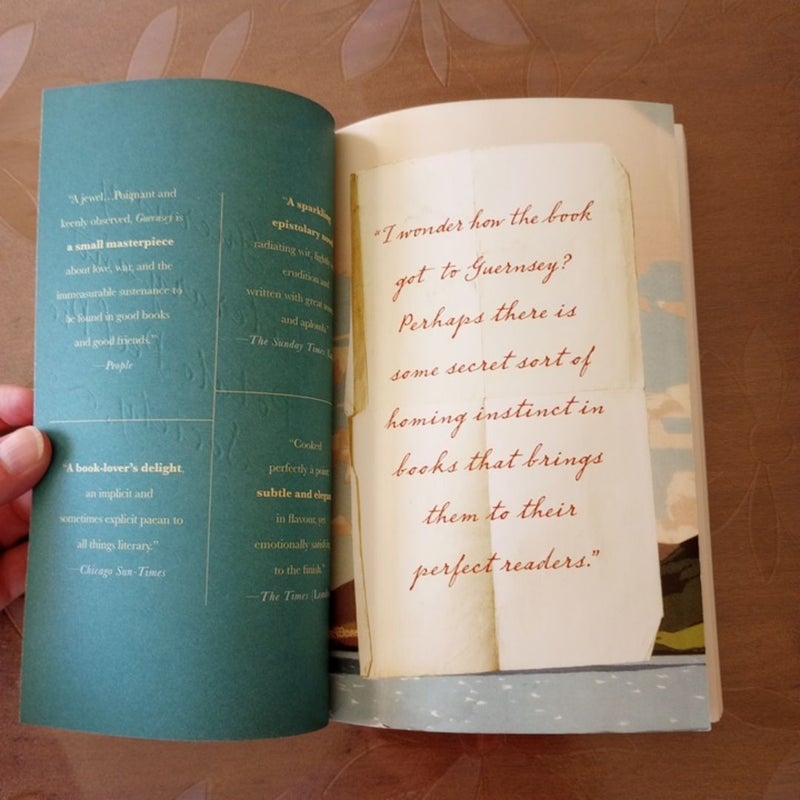 "A jewel...Poignant and
keenly observed, Guernsey is
a small masterpiece
about love, war, and the
immeasurable sustenance to
be found in good books
and good friends."
—People
"A sparkling
epistolary
radiating wit,
erudition and
written with great
and aplomb."
—The Sunday Times
"A book-lover's delight,
an implicit and
sometimes explicit paean to
all things literary."
—Chicago Sun-Times
"Cooked
perfectly à point:
subtle and
in flavour, yet
emotionally
to the finish."
—The Times
"I wonder how the book
got to Guernsey?
Perhaps there is
some secret sort of
homing instinct in
books that brings
them to their
perfect readers."